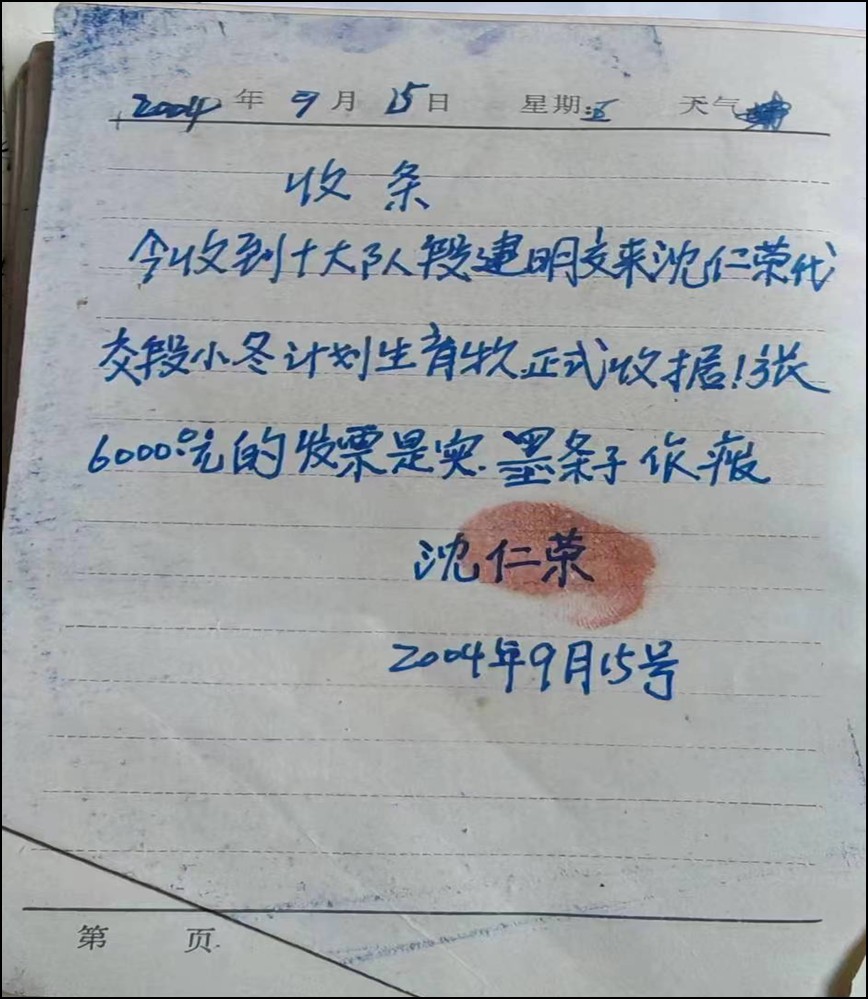 2004年 9月 15日 星期 天气
收条
今收到十大队段建明交来沈仁荣代
交段小冬计划生育 正式收据1张
6000元的发票是实.墨条子作废
沈仁荣
2004年9月15号
第 页